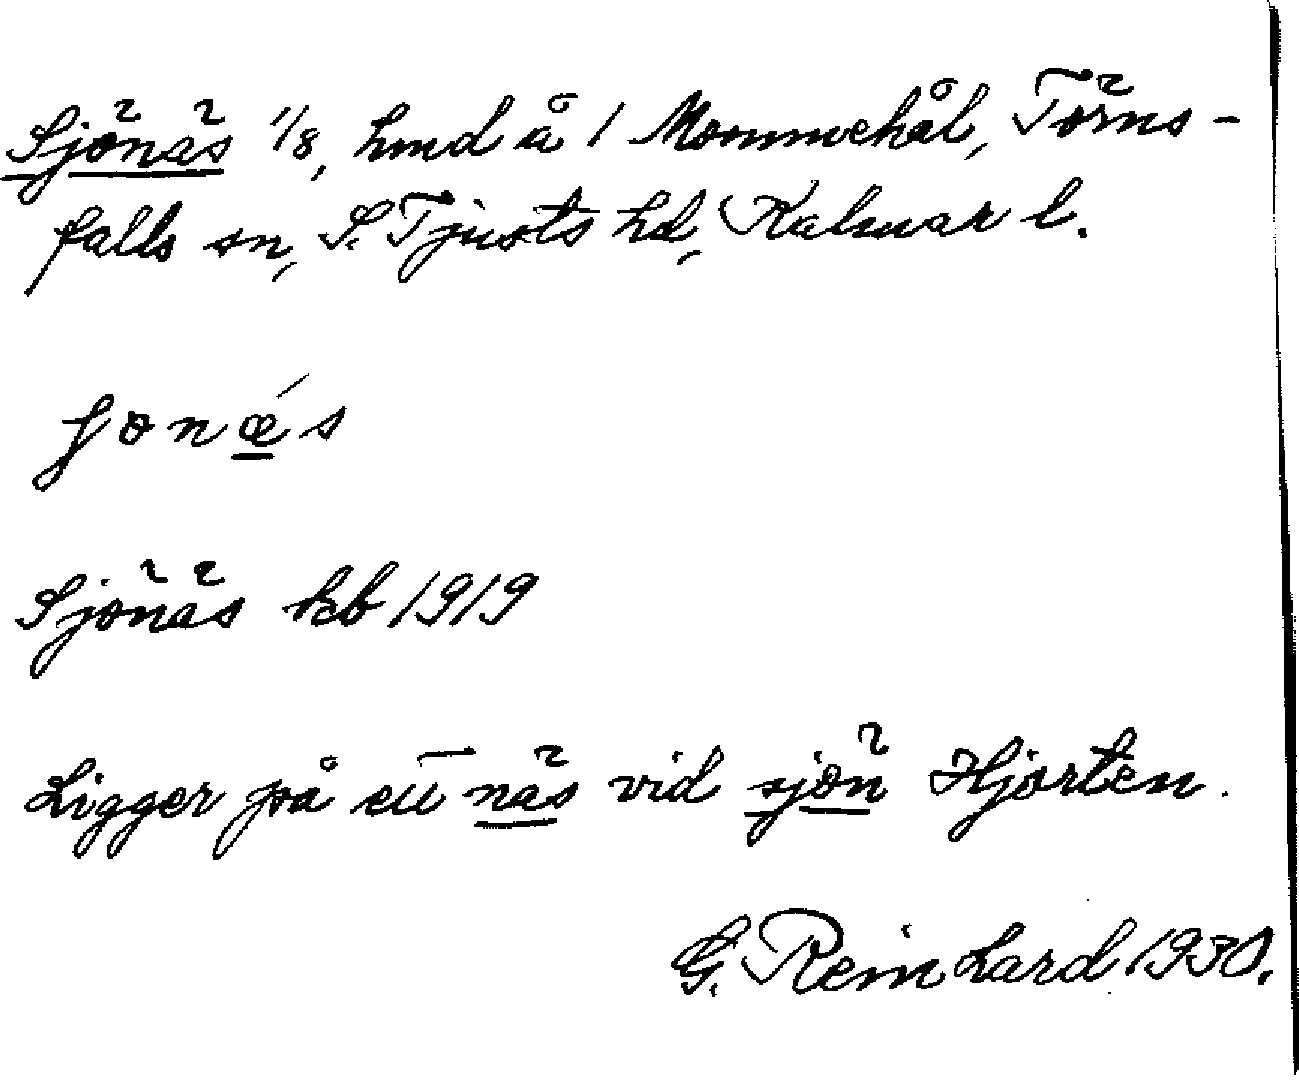 Sjönäs 1/8, hmd å 1 Mommehål, Törns-
falls sn, S. Tjusts hd, Kalmar l.
ʃonǽs
Sjönäs kb 1919
Ligger på ett näs vid sjön Hjorten.
G. Reinhard 1930.